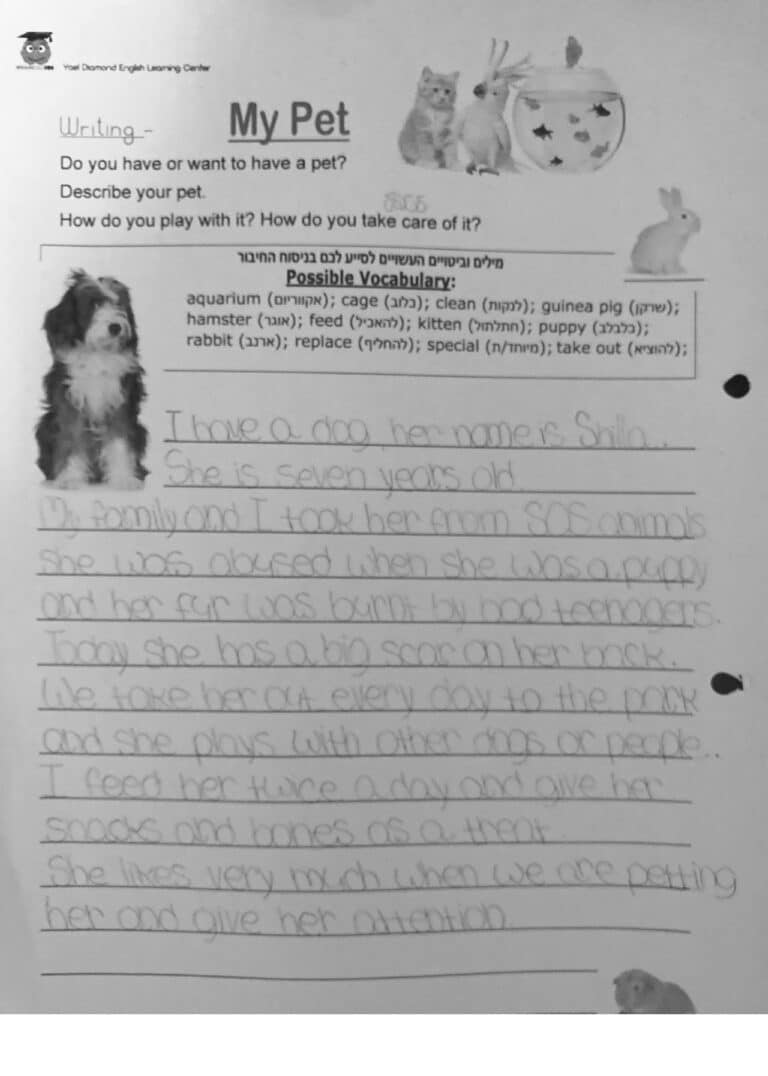 Yael Diamond English Learning Center
Writing - My Pet
Do you have or want to have a pet?
Describe your pet.
SOS
How do you play with it? How do you take care of it?
מילים וביטויים העשויים לסייע לכם בניסוח החיבור
Possible Vocabulary:
aquarium (אקווריום); cage (כלוב); clean (לנקות); guinea pig (שרקן);
hamster (אוגר); feed (להאכיל); kitten (חתלתול); puppy (כלבלב);
rabbit (ארנב); replace (להחליף); special (מיוחד/ת); take out (להוציא);
I have a dog, her name is Shilla..
She is seven years old
My family and I took her from SOS animals
she was abused when she was a puppy
and her fur was burnt by bad teenagers.
Today she has a big scar on her back.
We take her out every day to the park
and she plays with other dogs or people..
I feed her twice a day and give her
snacks and bones as a treat
She likes very much when we are petting
her and give her attention